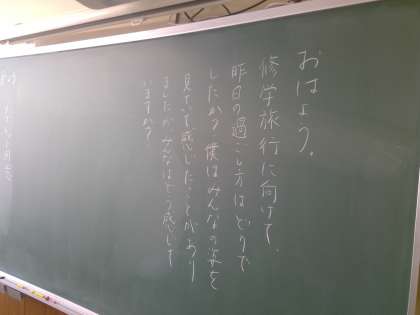 おはよう。
修学旅行に向けて、
昨日の過ごし方はどうで
したか？僕はみんなの姿を
見ていて感じたことがあり
ましたが、みんなはどう感じて
いますか？